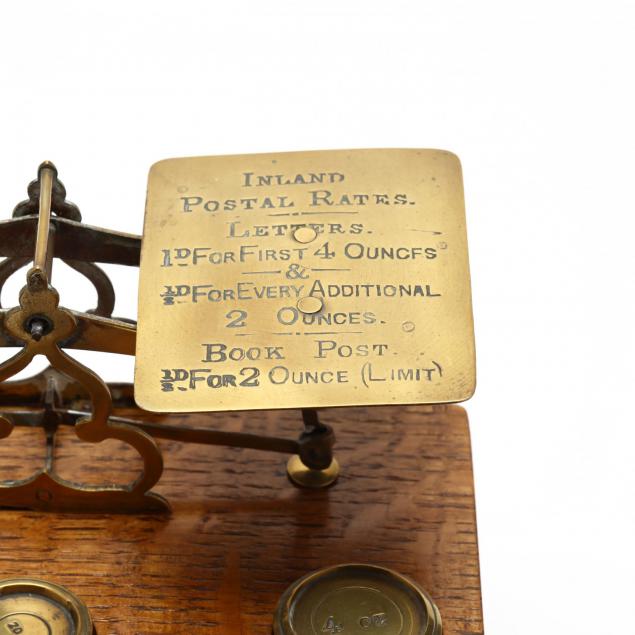 INLAND
POSTAL RATES.
LETTERS.
1D FOR FIRST 4 OUNCES
&
½D FOR EVERY ADDITIONAL
2 OUNCES.
BOOK POST.
½D FOR 2 OUNCE (LIMIT)
4 OZ